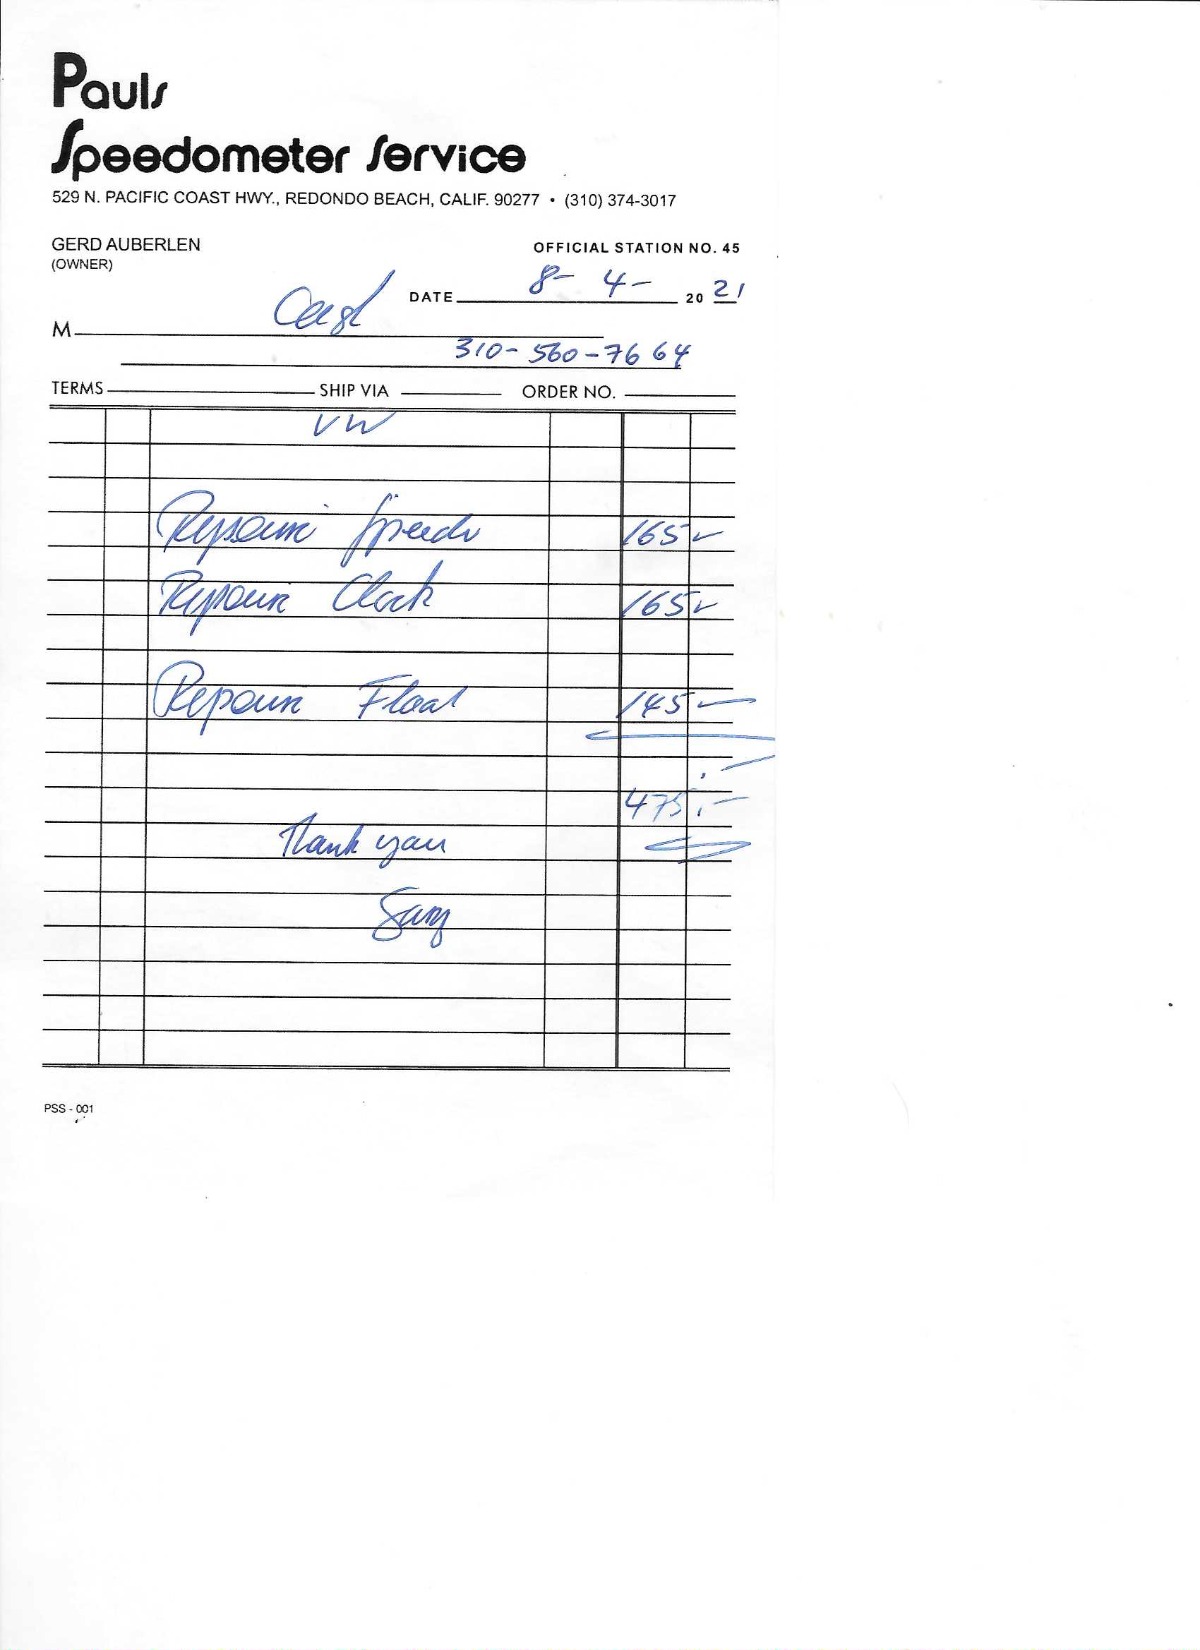 Pauls
Speedometer Service
529 N. PACIFIC COAST HWY., REDONDO BEACH, CALIF. 90277 • (310) 374-3017
GERD AUBERLEN
(OWNER)
OFFICIAL STATION NO. 45
DATE 8- 4- 20 21
M Cash
310-560-7664
TERMS SHIP VIA ORDER NO.
VW
Repair Speedo 165-
Repair Clock 165-
Repair Float 145-
475.-
Thank you
PSS - 001